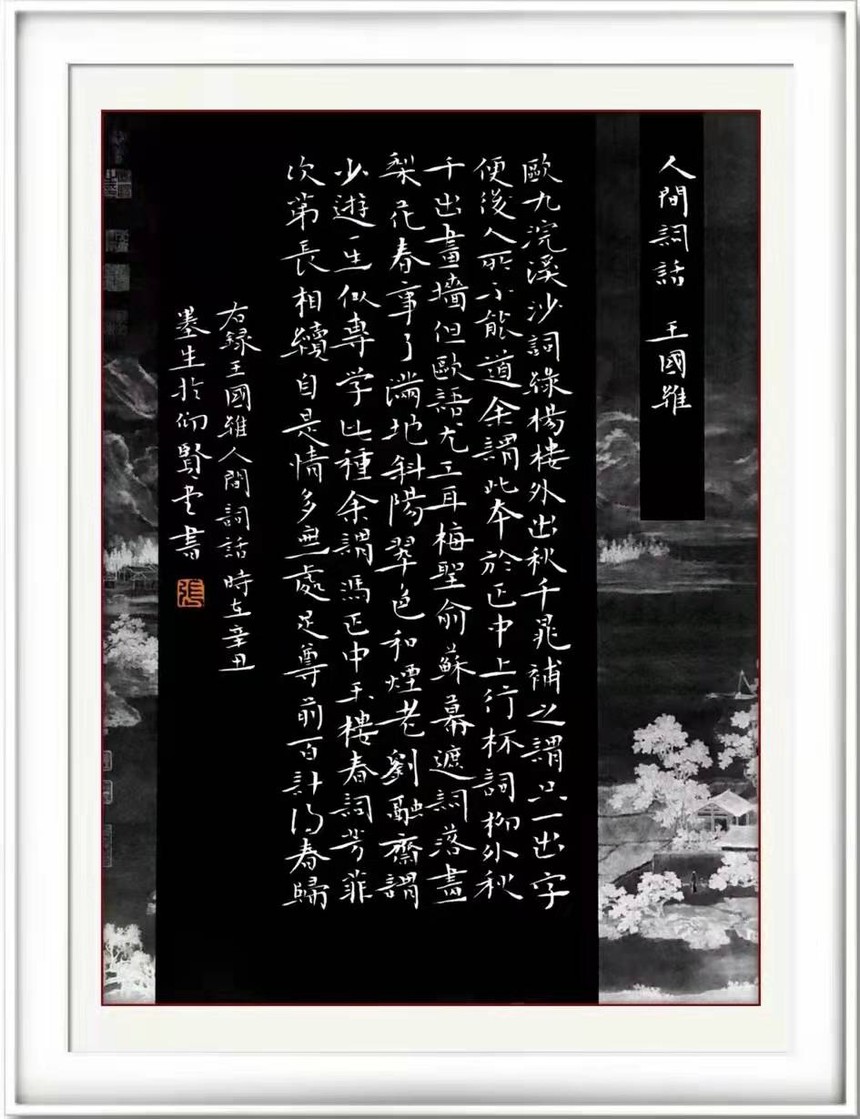 人間詞話 王國維
歐九浣溪沙詞綠楊樓外出秋千晁補之謂只一出字
便後人所不能道余謂此本於正中上行杯詞柳外秋
千出畫墻但歐語尤工耳梅聖俞蘇幕遮詞落盡
梨花春事了滿地斜陽翠色和煙老劉融齋謂
少遊一生似專学此種余謂馮正中玉樓春詞芳菲
次第長相續自是情多無處足尊前百計得春歸
右録王國維人間詞話時在辛丑
墨生於仰賢堂書
張